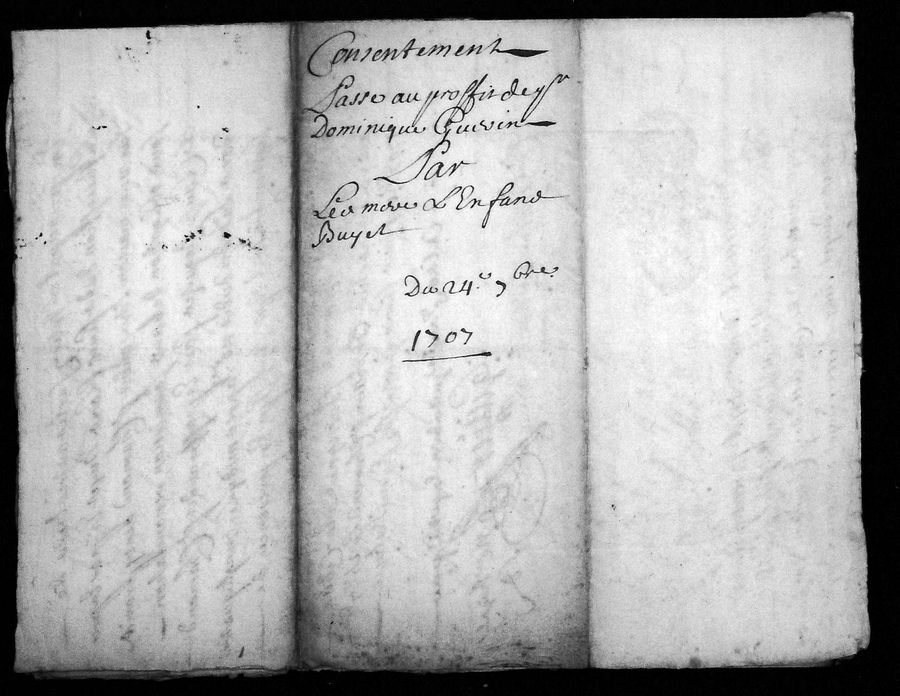 Consentement
Passe au proffit de sr
Dominique Guerin
Par
Les mere L'Enfans
Buyet
Du 24e 7bre
1707